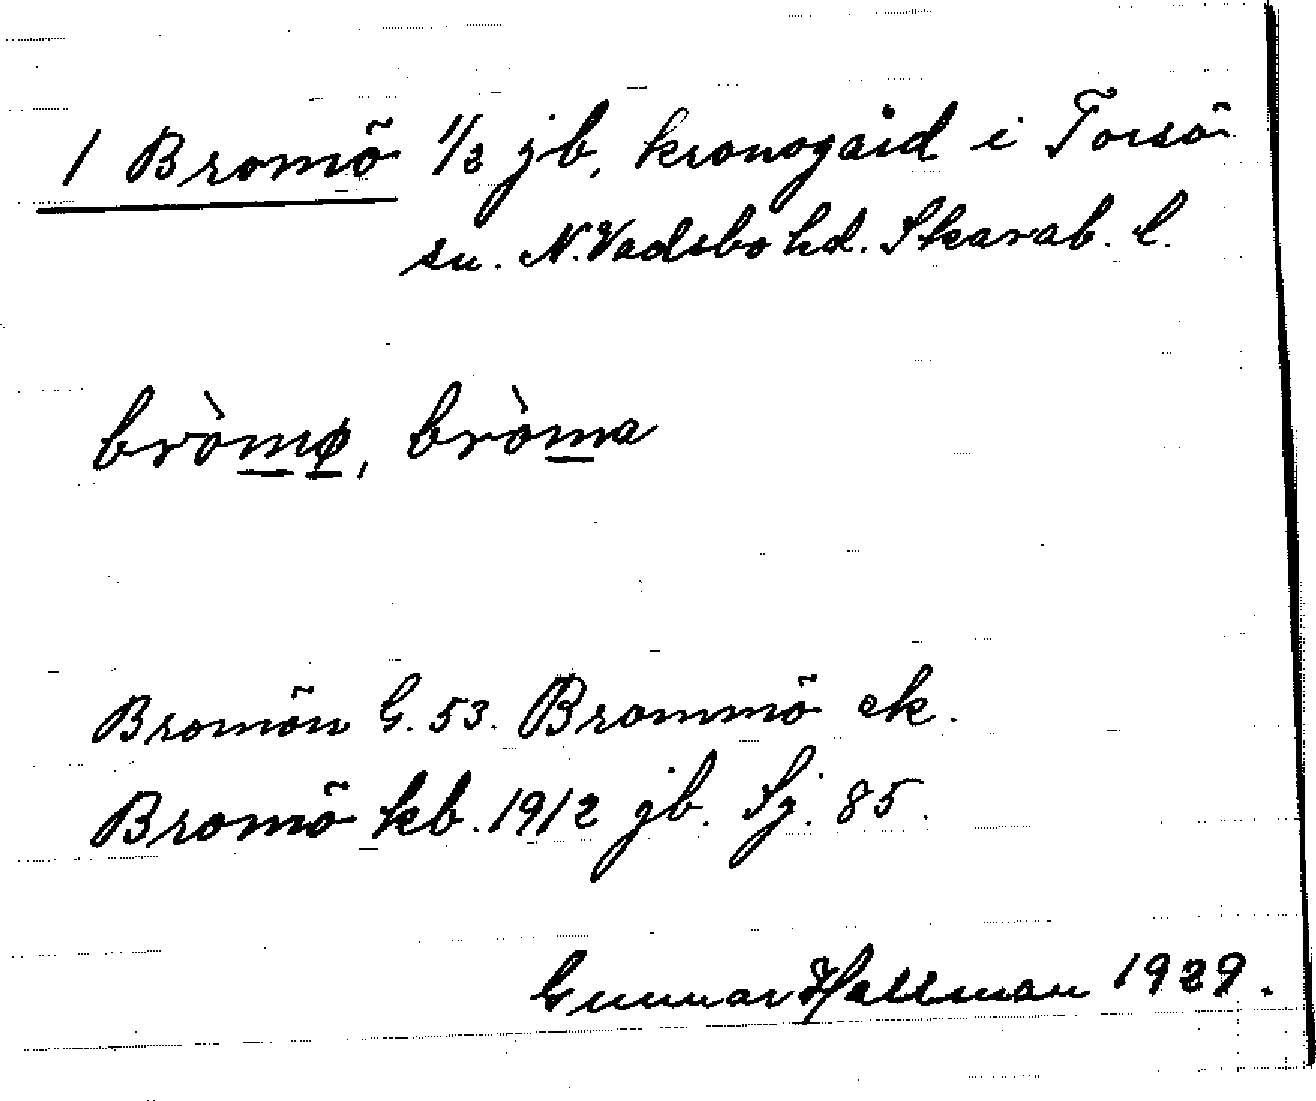 1 Bromö 1/2 jb, kronogård i Torsö
sn. N.Vadsbo hd. Skarab. l.
bròmø, bròma
Bromön G. 53. Brommö ek.
Bromö kb. 1912 jb. Sj. 85.
Gunnar Hallman 1929.